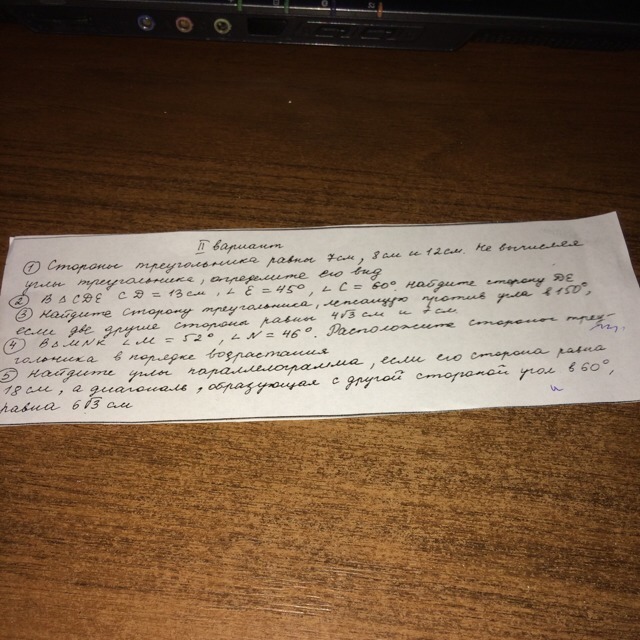 II вариант
① Стороны треугольника равны 7см, 8см и 12см. Не вычисляя
углы треугольника, определите его вид
② В △CDE CD = 13см, ∠E = 45°, ∠C = 60°. Найдите сторону DE
③ Найдите сторону треугольника, лежащую против угла в 150°,
если две другие стороны равны 4√3 см и 7см.
④ В △MNK ∠M = 52°, ∠N = 46°. Расположите стороны треу-
гольника в порядке возрастания
⑤ Найдите углы параллелограмма, если его сторона равна
18см, а диагональ, образующая с другой стороной угол в 60°,
равна 6√3 см